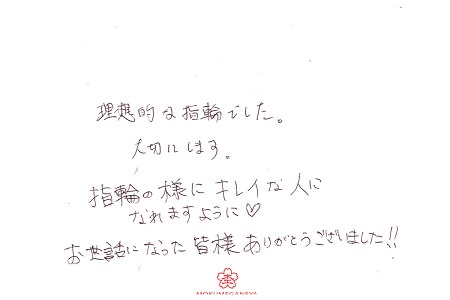 理想的な指輪でした。
大切にします。
指輪の様にキレイな人に
なれますように♡
お世話になった皆様ありがとうございました!!
MOKUMEGANEYA